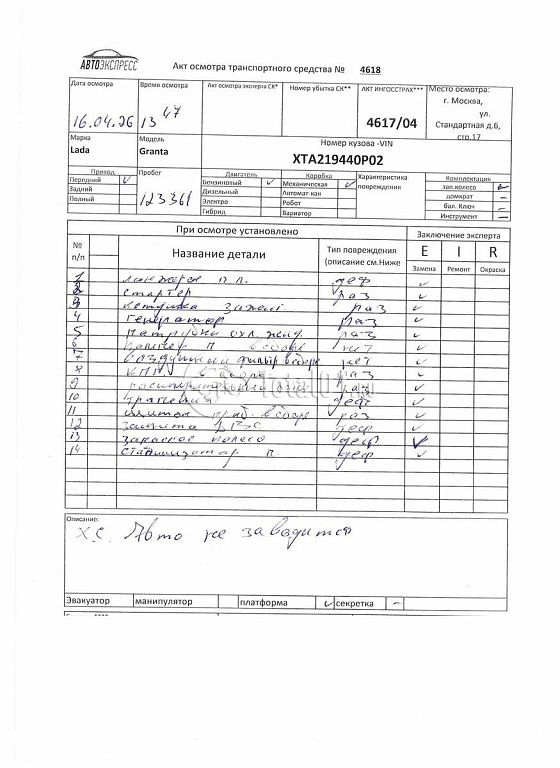 АВТОЭКСПРЕСС
Акт осмотра транспортного средства № 4618
Дата осмотра Время осмотра Акт осмотра эксперта СК* Номер убытка СК** АКТ ИНГОССТРАХ*** Место осмотра:
16.04.26 13 47 4617/04 г. Москва,
ул.
Стандартная д.6,
стр.17
Марка Модель Номер кузова -VIN
Lada Granta XTA219440P02
Привод Пробег Двигатель Коробка Характеристика повреждения Комплектация
Передний ✓ 123361 Бензиновый ✓ Механическая ✓ зап.колесо ✓
Задний Дизельный Автомат-кая домкрат –
Полный Электро Робот бал. Ключ –
Гибрид Вариатор Инструмент –
При осмотре установлено Заключение эксперта
№ п/п Название детали Тип повреждения (описание см.Ниже E I R
Замена Ремонт Окраска
1 лонжерон п л. деф ✓
2 стартер раз ✓
3 катушка зажиг. раз ✓
4 генератор раз ✓
5 патрубки охл. жид. раз ✓
6 п в сборе нет ✓
7 воздушный фильтр в сборе нет ✓
8 КПП в сборе раз ✓
9 расширительный бачок раз ✓
10 деф ✓
11 щиток приб. в сборе раз ✓
12 защита ДВС деф ✓
13 запасное колесо деф ✓
14 стабилизатор п. деф ✓
Описание:
х.с. Авто не заводится
Эвакуатор манипулятор платформа ✓ секретка –